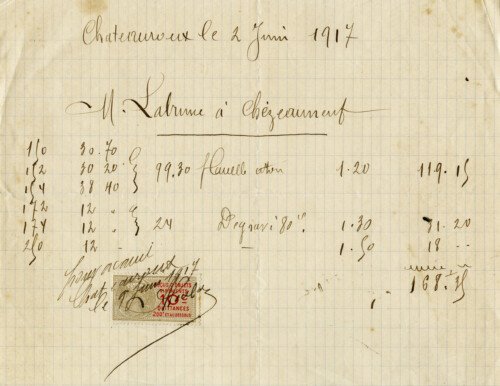 Chateauroux le 2 Juin 1917
M. Labrune à Chézeauneuf
150 30.70
152 30 20 99.30 flanelle coton 1.20 119.15
154 38 40
172 12 "
174 12 " 24 Degravé 80 1.30 31.20
250 12 1.50 18 "
168.35
Pour acquit
Chateauroux
le 2 Juin 1917
QUITTANCES